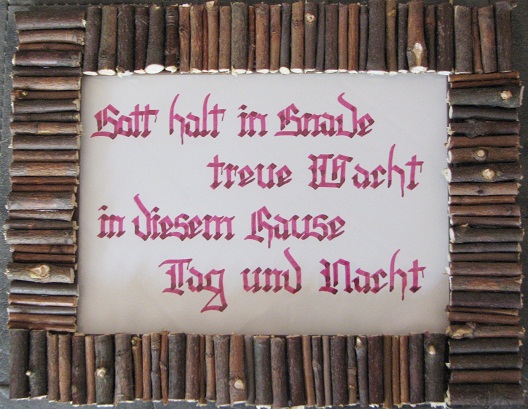 Gott halt in Gnade
treue Wacht
in diesem Hause
Tag und Nacht